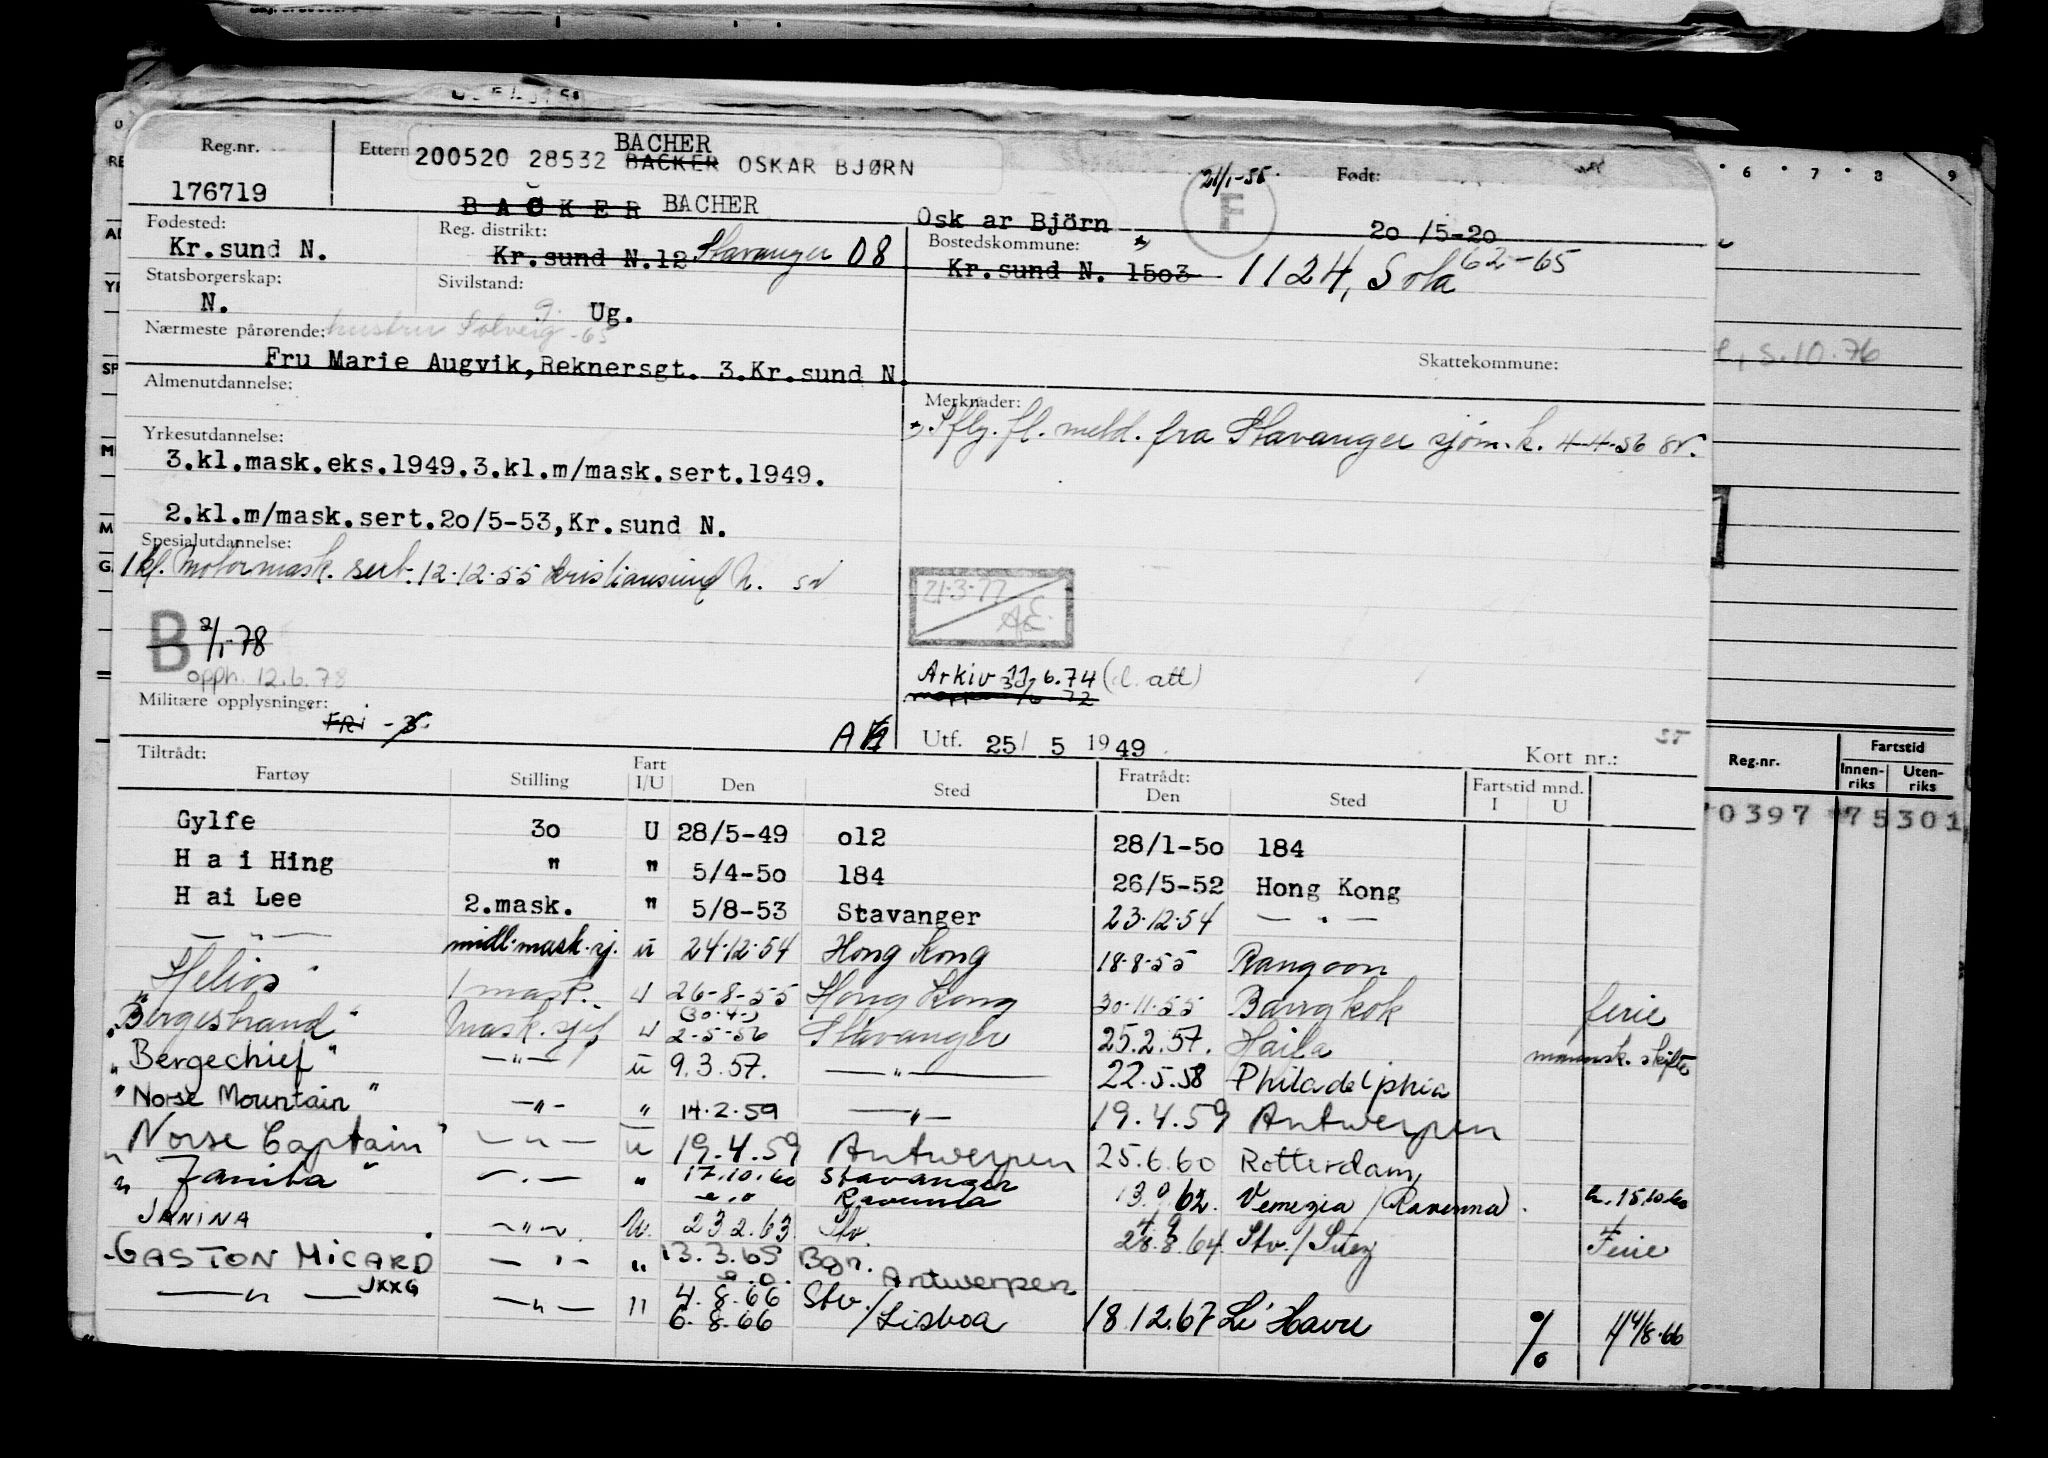 Reg.nr.
176719
Ettern
BACHER
200520 28532 BACKER OSKAR BJØRN
BACKER BACHER
Osk ar Björn
21/1-55.
F
Født:
20 /5-20
Fødested:
Kr.sund N.
Reg. distrikt:
Kr.sund N.12 Stavanger 08
Bostedskommune:
Kr.sund N. 1503 1124, Sola 62-65
Statsborgerskap:
N.
Sivilstand:
g. Ug.
Nærmeste pårørende: hustru Solveig -65
Fru Marie Augvik,Reknersgt. 3.Kr.sund N.
Skattekommune:
Almenutdannelse:
Merknader:
Iflg. fl. meld. fra Stavanger sjøm.k. 4-4-56
Yrkesutdannelse:
3.kl.mask.eks.1949.3.kl.m/mask.sert.1949.
2.kl.m/mask.sert.20/5-53,Kr.sund N.
Spesialutdannelse:
1 kl. Motormask. sert. 12.12.55 Kristiansund N.
B 2/1-78
opph. 12.6.78
21.3.77
AE.
Arkiv 11.6.74 (d. att)
Militære opplysninger:
FRI
Utf. 25/ 5 1949
Kort nr.:
Tiltrådt:
Fartøy Stilling Fart I/U Den Sted Fratrådt: Den Sted Fartstid mnd. I U
Gylfe 30 U 28/5-49 012 28/1-50 184
H a i Hing " " 5/4-50 184 26/5-52 Hong Kong
H ai Lee 2.mask. " 5/8-53 Stavanger 23.12.54 — " —
— " — midl. mask. sj. u 24.12.54 Hong Kong 18.8.55 Rangoon
"Helios" 1 mask. u 26-8-55 Hong Kong 30-11-55 Bangkok ferie
"Bergestrand" Mask.sjef u 2-5-56 Stavanger 25.2.57. Haifa mannsk. skifte
"Bergechief" — " — u 9.3.57. — " — 22.5.58 Philadelphia
"Norse Mountain" — " — " 14.2.59 — " — 19.4.59 Antwerpen
"Norse Captain" — " — u 19.4.59 Antwerpen 25.6.60 Rotterdam
"Janita" — " — " 17.10.60 Stavanger Ravenna 13.9.62. Venezia (Ravenna). 15.10.60
JANINA — " — u. 23 2.63 Stv. 28.8.64 Stv./Suez Ferie
GASTON MICARD — " — " 13.3.65 Bgn. Antwerpen
— " — JXXG — " — " 4.8.66 Stv.
6.8.66 /Lisboa 18.12.67 Le Havre % 4/8.66
6 7 8 9
5.10.76
Reg.nr. Fartstid
Innen-riks Uten-riks
0397 75301